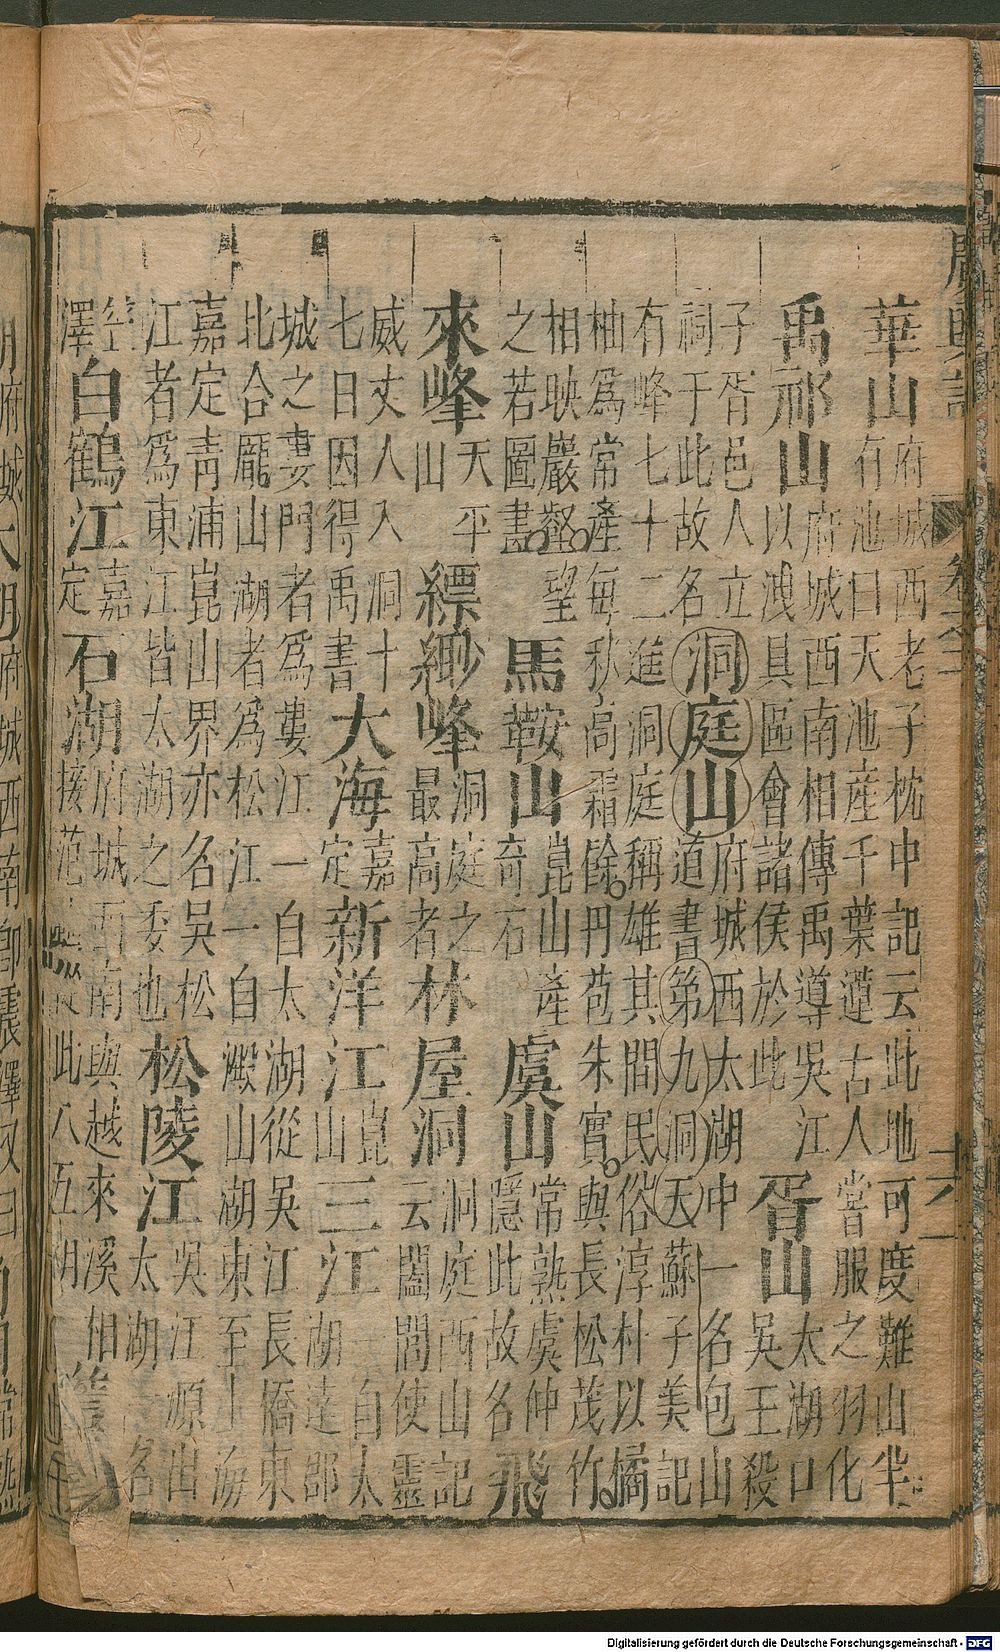 廣輿記
卷之三
華山
府城西老子枕中記云此地可度難山半
有池曰天池產千葉蓮古人嘗服之羽化
禹祁山
府城西南相傳禹導吳江
以溲具區會諸侯於此
胥山
太湖口
吳王殺
子胥邑人立
祠于此故名
洞庭山
府城西太湖中一名包山
道書第九洞天蘇子美記
有峰七十二進洞庭稱雄其間民俗淳朴以橘
柚爲常產每秋高霜餘丹苞朱實與長松茂竹
相映巖壑望
之若圖畫
馬鞍山
崑山產
奇石
虞山
常熟虞仲
隱此故名
飛
來峰
天平
山
縹緲峰
洞庭之
最高者
林屋洞
洞庭西山記
云闔閭使靈
威丈人入洞十
七日因得禹書
大海
嘉
定
新洋江
崑
山
三江
一自太
湖達郡
城之婁門者爲婁江一自太湖從吳江長橋東
北合龐山湖者爲松江一自澱山湖東至上海
嘉定青浦崑山界亦名吳松
江者爲東江皆太湖之委也
松陵江
吳江源出
太湖一名
笠
澤
白鶴江
嘉
定
石湖
府城西南與越來溪相
接范從此入五湖
Digitalisierung gefördert durch die Deutsche Forschungsgemeinschaft - DFG